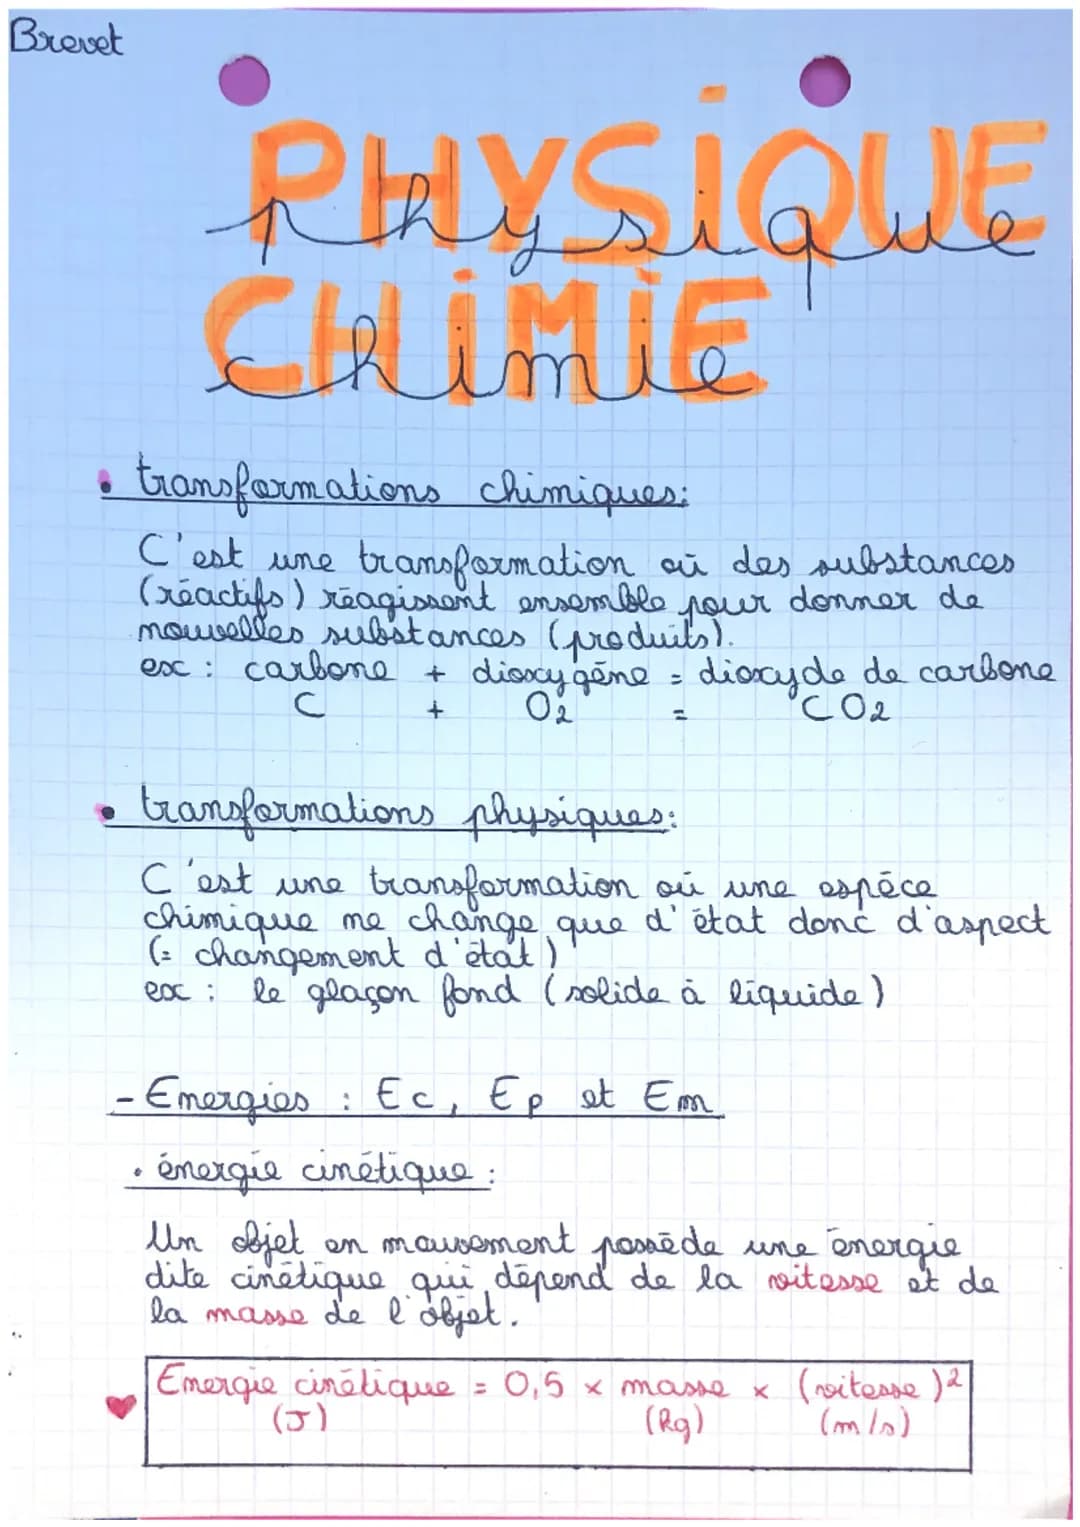 Brevet
PHYSIQUE
physique
CHIMIE
chimie
• transformations chimiques:
C'est une transformation où des substances
(réactifs) réagissent ensemble pour donner de
nouvelles substances (produits).
ex : carbone + dioxygène = dioxyde de carbone
C + O2 = CO2
• transformations physiques:
C'est une transformation où une espèce
chimique ne change que d'état donc d'aspect
(= changement d'état)
ex : le glaçon fond (solide à liquide)
- Energies : Ec, Ep et Em
. énergie cinétique :
Un objet en mouvement possède une énergie
dite cinétique qui dépend de la vitesse et de
la masse de l'objet.
Energie cinétique = 0,5 x masse x (vitesse)²
(J) (kg) (m/s)